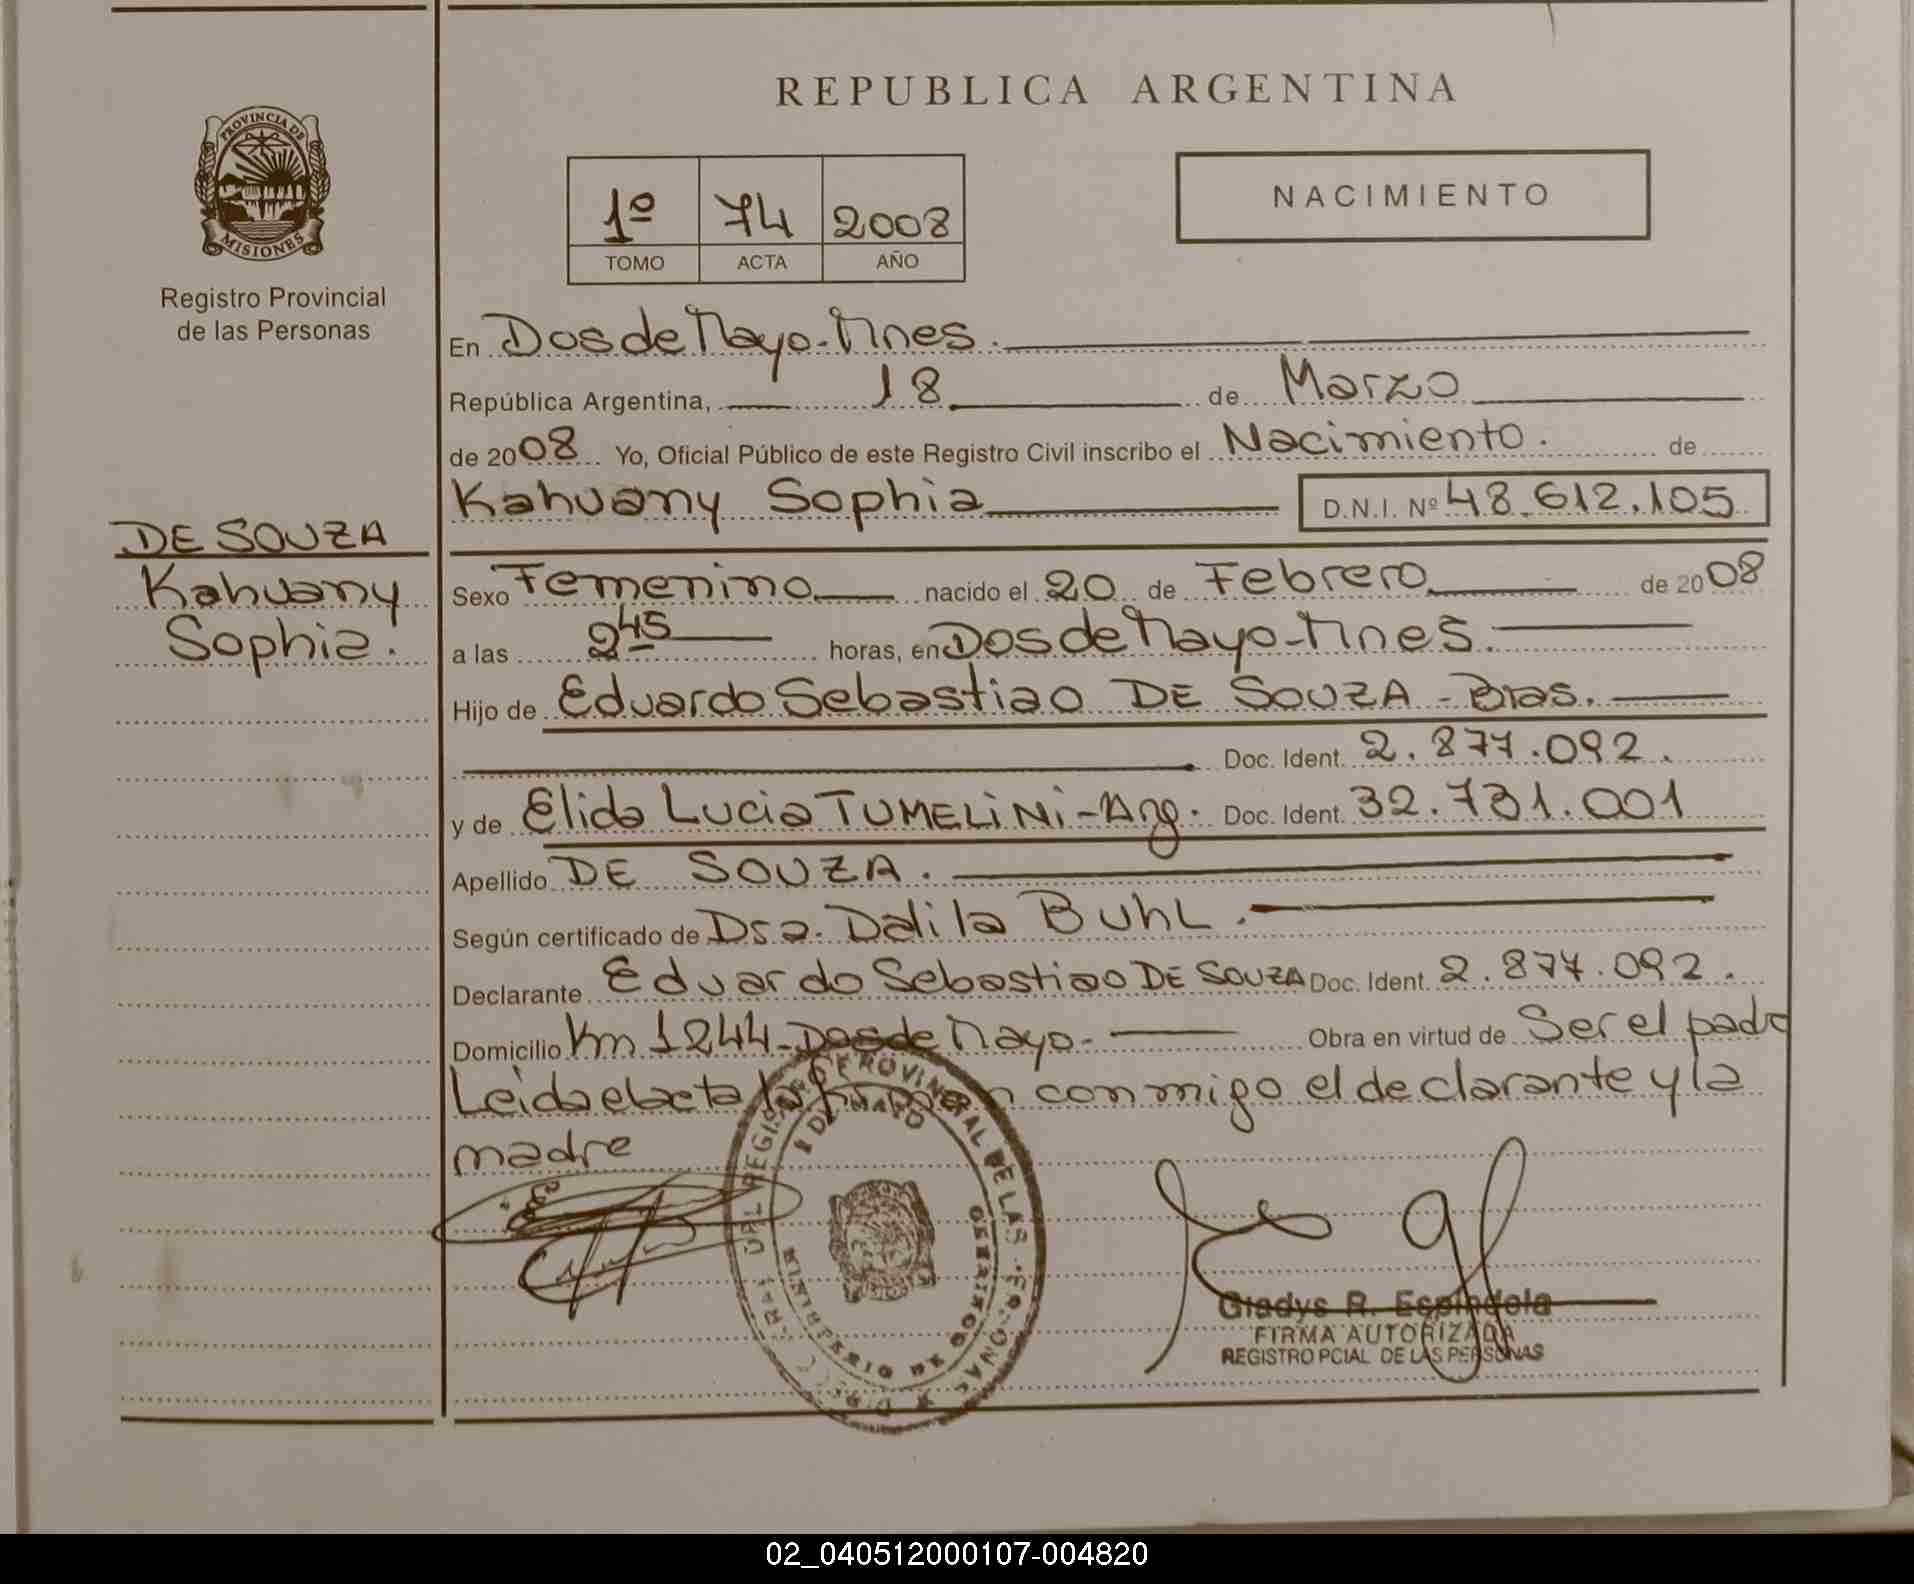 REPUBLICA ARGENTINA
PROVINCIA DE
MISIONES
Registro Provincial
de las Personas
1º 74 2008
TOMO ACTA AÑO
NACIMIENTO
En Dos de Mayo-Mnes.
República Argentina, 18 de Marzo
de 2008 Yo, Oficial Público de este Registro Civil inscribo el Nacimiento. de
Kahuany Sophia D.N.I. Nº 48.612.105
DE SOUZA
Kahuany
Sophia.
Sexo Femenino nacido el 20 de Febrero de 2008
a las 2 45 horas, en Dos de Mayo-Mnes.
Hijo de Eduardo Sebastiao DE SOUZA - Bras.
Doc. Ident. 2.877.092.
y de Elida Lucia TUMELiNi-Arg. Doc. Ident. 32.731.001
Apellido DE SOUZA.
Según certificado de Dra. Dalila BUhL.
Declarante Eduardo Sebastiao DE SOUZA Doc. Ident. 2.877.092.
Domicilio Km 1244-Dos de Mayo- Obra en virtud de Ser el padre
Leida el acta la firman conmigo el declarante y la
madre
Gladys R. Espindola
FIRMA AUTORIZADA
REGISTRO PCIAL DE LAS PERSONAS
02_040512000107-004820